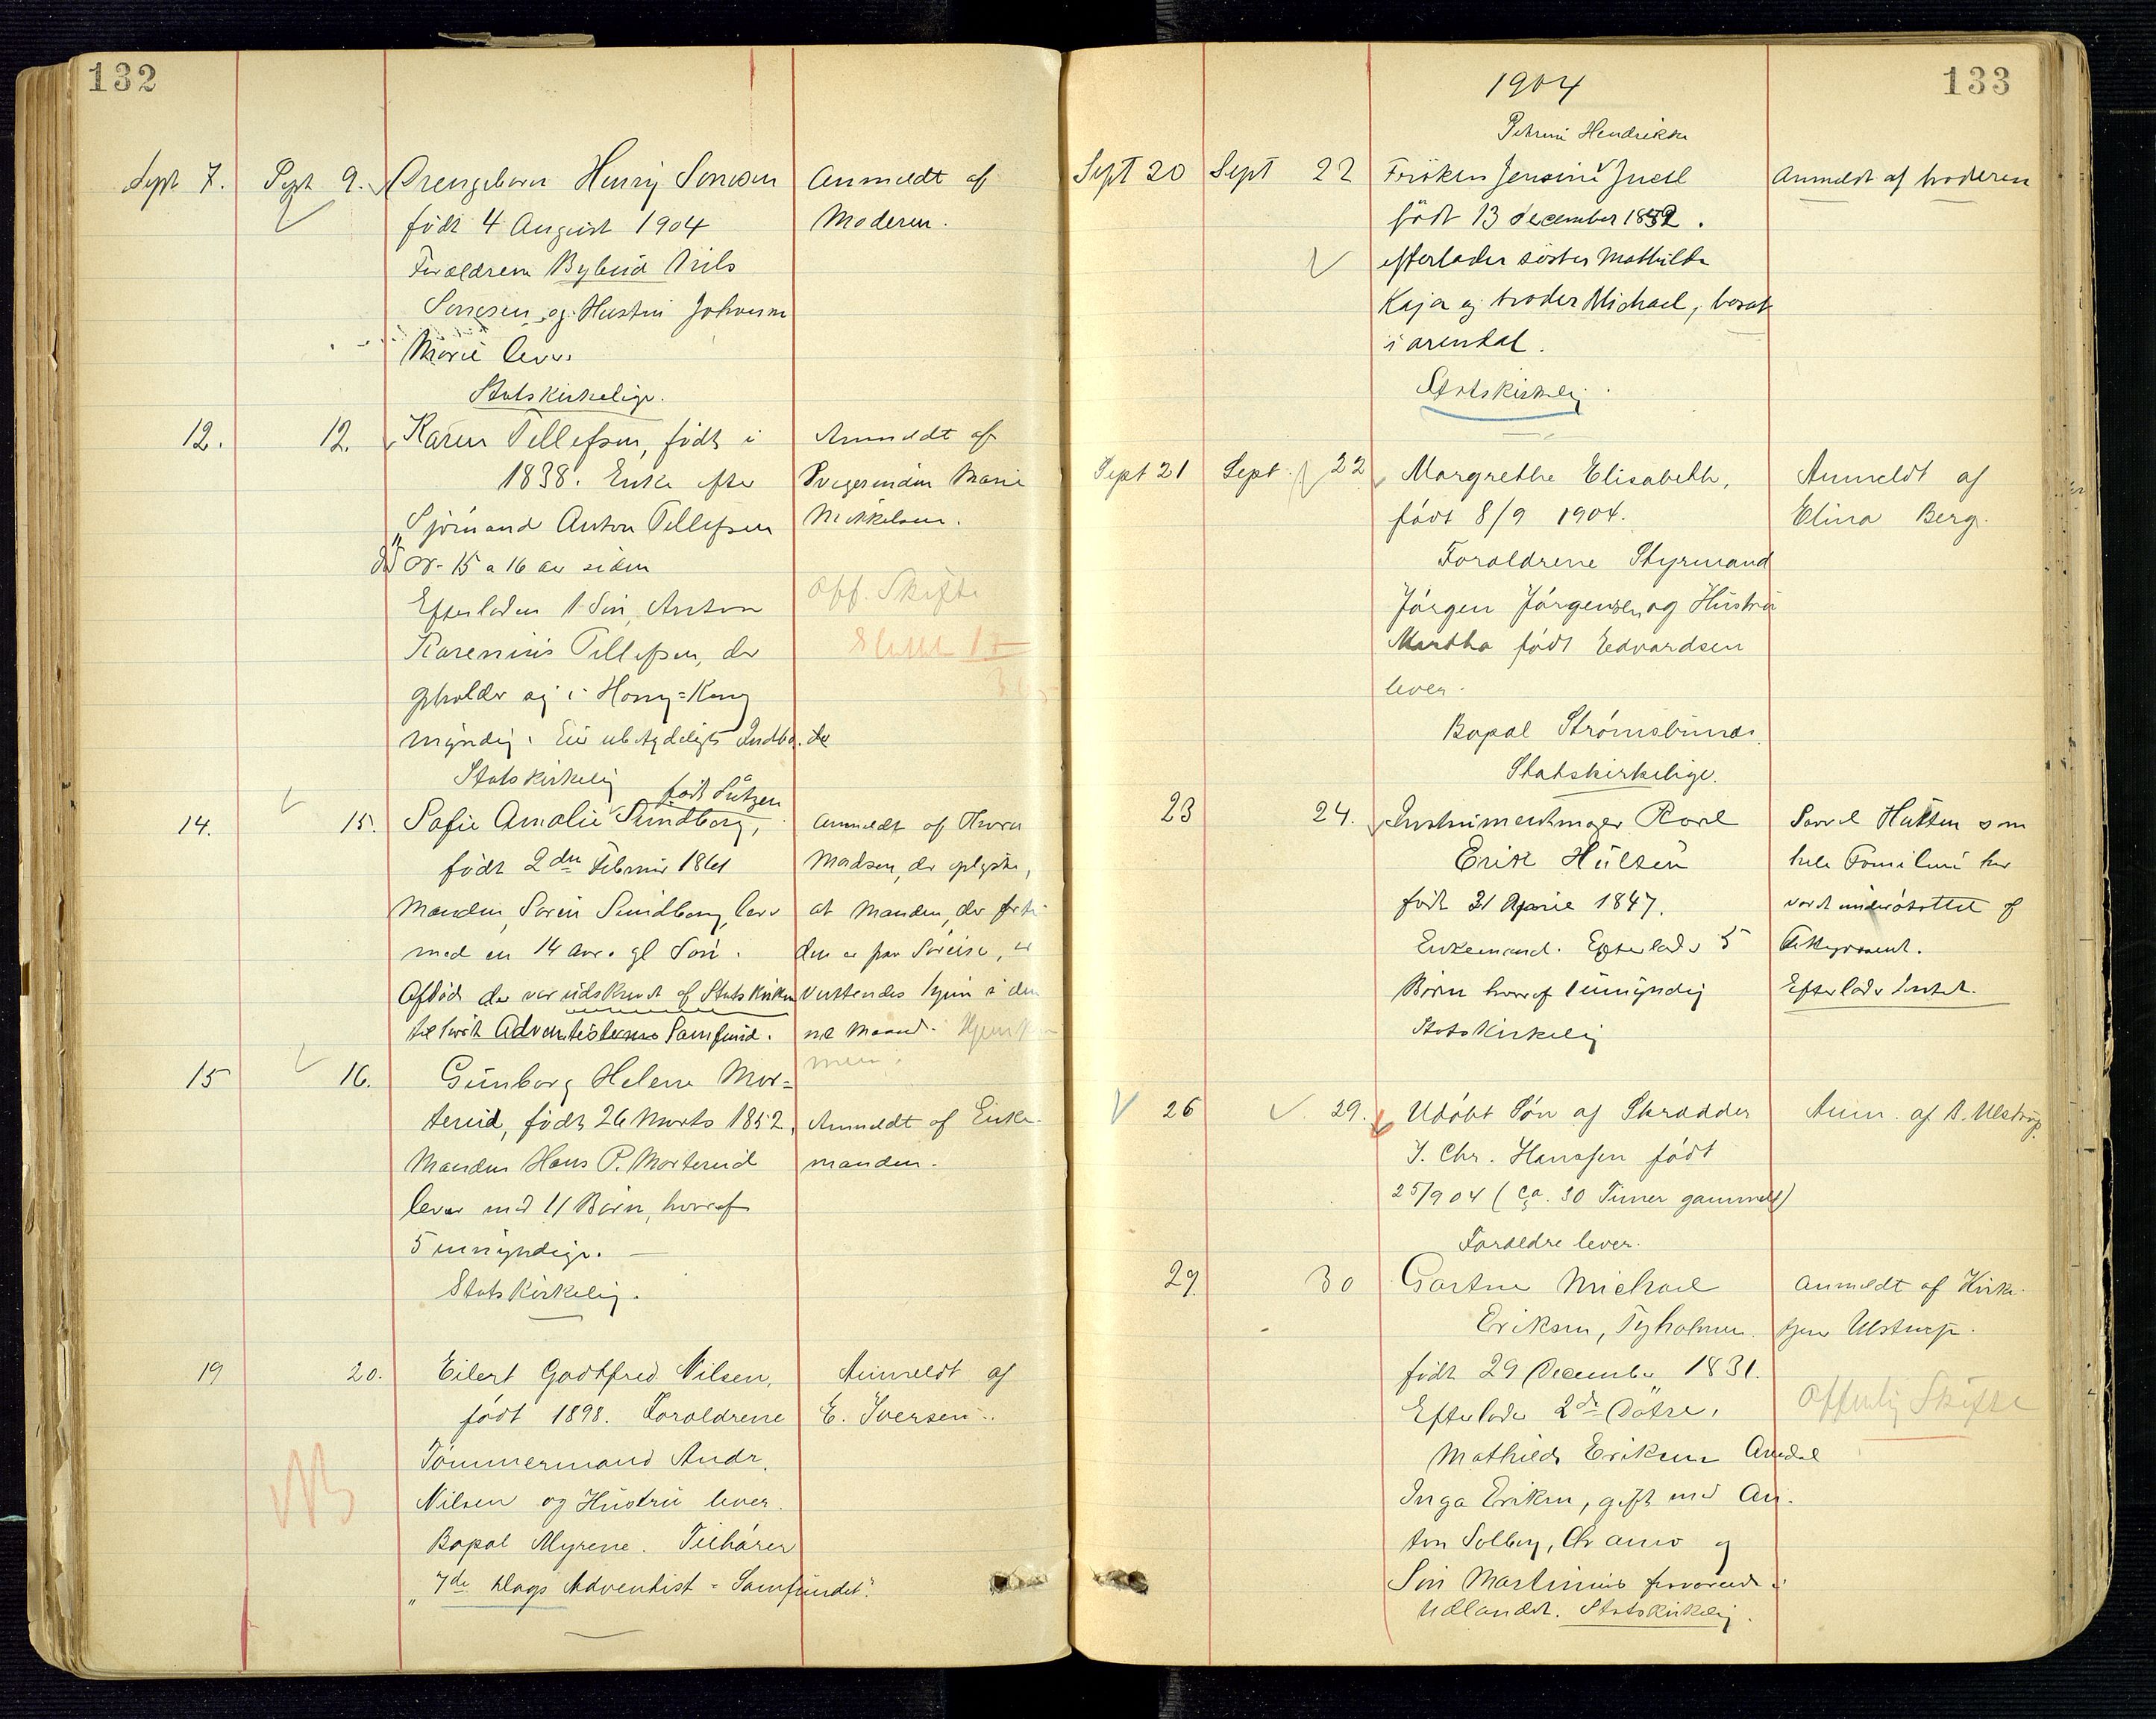 132
Sept 7. Sept 9. Drengebarn Henry Sørensen Anmeldt af
født 4 August 1904 Moderen.
Forældrene Bybud Nils
Sørensen og Hustru Johanne
Marie lever
Statskirkelige.
12. 12. Karen Tellefsen, født i Anmeldt af
1838. Enke efter Svigerinden Marie
Sjömand Anton Tellefsen Mikkelsen.
död for 15 a 16 aar siden
Efterlader 1 Sön, Anton Off. Skifte
Karenius Tellefsen, der
opholder sig i Hong=Kong
myndig. Eier ubetydeligt Indbo.
Statskirkelig
født Lützen
14. 15. Sofie Amalie Sundberg, Anmeldt af Thora
født 2den Februar 1861 Madsen, der oplyste,
Manden, Søren Sundberg, lever at Manden, der for ti
med en 14 aar gl Søn. den er paa Søreise, er
Afdöde der var udskrevet af Statskirken ventendes hjem i den
tilhørte Adventisternes Samfund. ne Maaned.
15 16. Gunborg Helene Mor=
terud, født 26 Marts 1852, Anmeldt af Enke-
Manden Hans P. Morterud manden.
lever med 11 Børn, hvoraf
5 umyndige.
Statskirkelig.
19 20. Eilert Godtfred Nilsen, Anmeldt af
født 1898. Forældrene E. Iversen.
Tömmermand Andr.
NB Nilsen og Hustru lever.
Bopæl Myrene. Tilhører
"7de Dags Adventist-Samfundet".
133
1904
Petrine Hendrikke
Sept 20 Sept 22 Frøken Jensine Juell Anmeldt af broderen
født 13 december 1852.
efterlader søster Mathilde
Kaja og broder Michael, bosat
i arendal.
Statskirkelig
Sept 21 Sept. 22 Margrethe Elisabeth, Anmeldt af
født 8/9 1904. Elina Berg.
Forældrene Styrmand
Jörgen Jörgensen og Hustru
Martha født Edvardsen
lever.
Bopæl Strømsbunes.
Statskirkelige.
23 24. Instrumentmager Karl
Erik Hülsen hele Familien har
født 21 April 1847. været understøttet af
Enkemand. Efterlader 5 Fattigvæsenet.
Börn hvoraf 1 umyndig Efterlader Intet.
Statskirkelig
26 29. Udöbt Sön af Skrædder Anm. af A. Ulstrup.
J. Chr. Hansen født
25/9 04 (ca. 30 Timer gammelt)
Forældre lever.
29. 30 Gartner Michael Anmeldt af Kirke-
Eriksen, Tyholmen. tjener Ulstrup.
født 29 December 1831.
Efterlader 2de Døtre, Offentlig Skifte
Mathilde Eriksen Arendal
Inga Eriksen, gift med An-
ton Solberg, Chr ania og
Søn Martinius fraværende i
Udlandet. Statskirkelig.